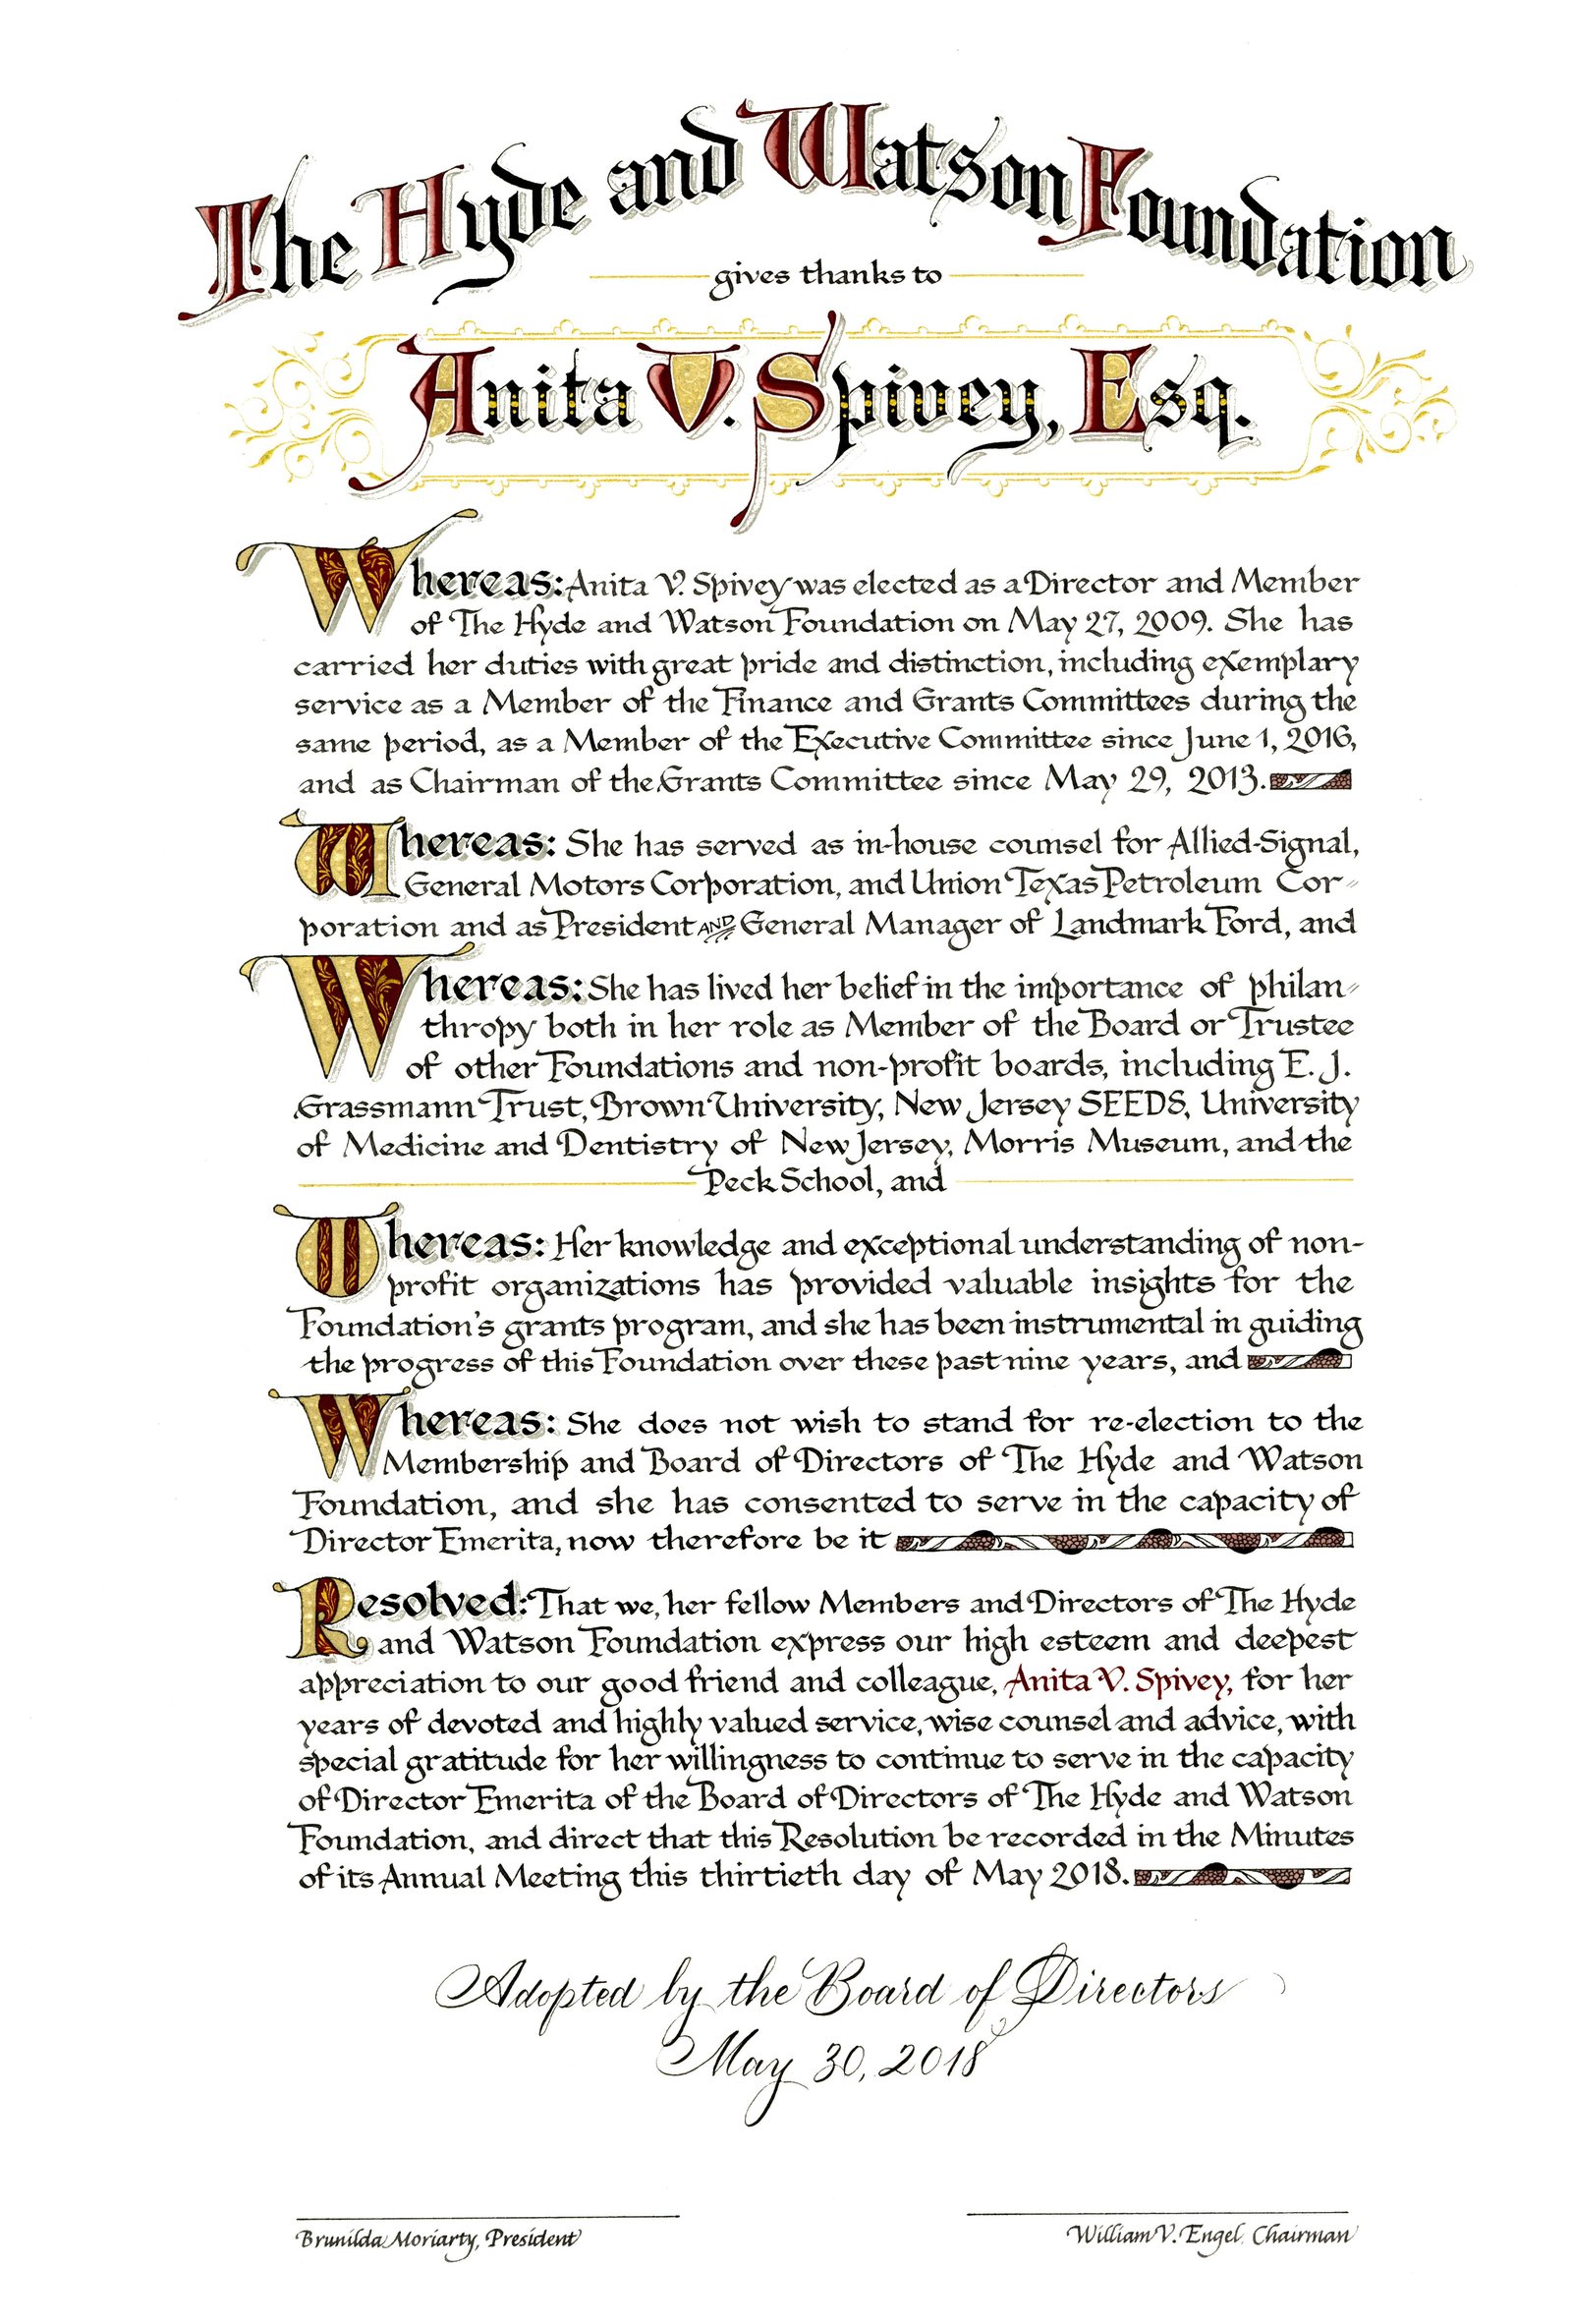 The Hyde and Watson Foundation
gives thanks to
Anita V. Spivey, Esq.
Whereas: Anita V. Spivey was elected as a Director and Member
of The Hyde and Watson Foundation on May 27, 2009. She has
carried her duties with great pride and distinction, including exemplary
service as a Member of the Finance and Grants Committees during the
same period, as a Member of the Executive Committee since June 1, 2016,
and as Chairman of the Grants Committee since May 29, 2013.
Whereas: She has served as in-house counsel for Allied-Signal,
General Motors Corporation, and Union Texas Petroleum Cor-
poration and as President AND General Manager of Landmark Ford, and
Whereas: She has lived her belief in the importance of philan-
thropy both in her role as Member of the Board or Trustee
of other Foundations and non-profit boards, including E. J.
Grassmann Trust, Brown University, New Jersey SEEDS, University
of Medicine and Dentistry of New Jersey, Morris Museum, and the
Peck School, and
Whereas: Her knowledge and exceptional understanding of non-
profit organizations has provided valuable insights for the
Foundation's grants program, and she has been instrumental in guiding
the progress of this Foundation over these past nine years, and
Whereas: She does not wish to stand for re-election to the
Membership and Board of Directors of The Hyde and Watson
Foundation, and she has consented to serve in the capacity of
Director Emerita, now therefore be it
Resolved: That we, her fellow Members and Directors of The Hyde
and Watson Foundation express our high esteem and deepest
appreciation to our good friend and colleague, Anita V. Spivey, for her
years of devoted and highly valued service, wise counsel and advice, with
special gratitude for her willingness to continue to serve in the capacity
of Director Emerita of the Board of Directors of The Hyde and Watson
Foundation, and direct that this Resolution be recorded in the Minutes
of its Annual Meeting this thirtieth day of May 2018.
Adopted by the Board of Directors
May 30, 2018
Brunilda Moriarty, President
William V. Engel, Chairman